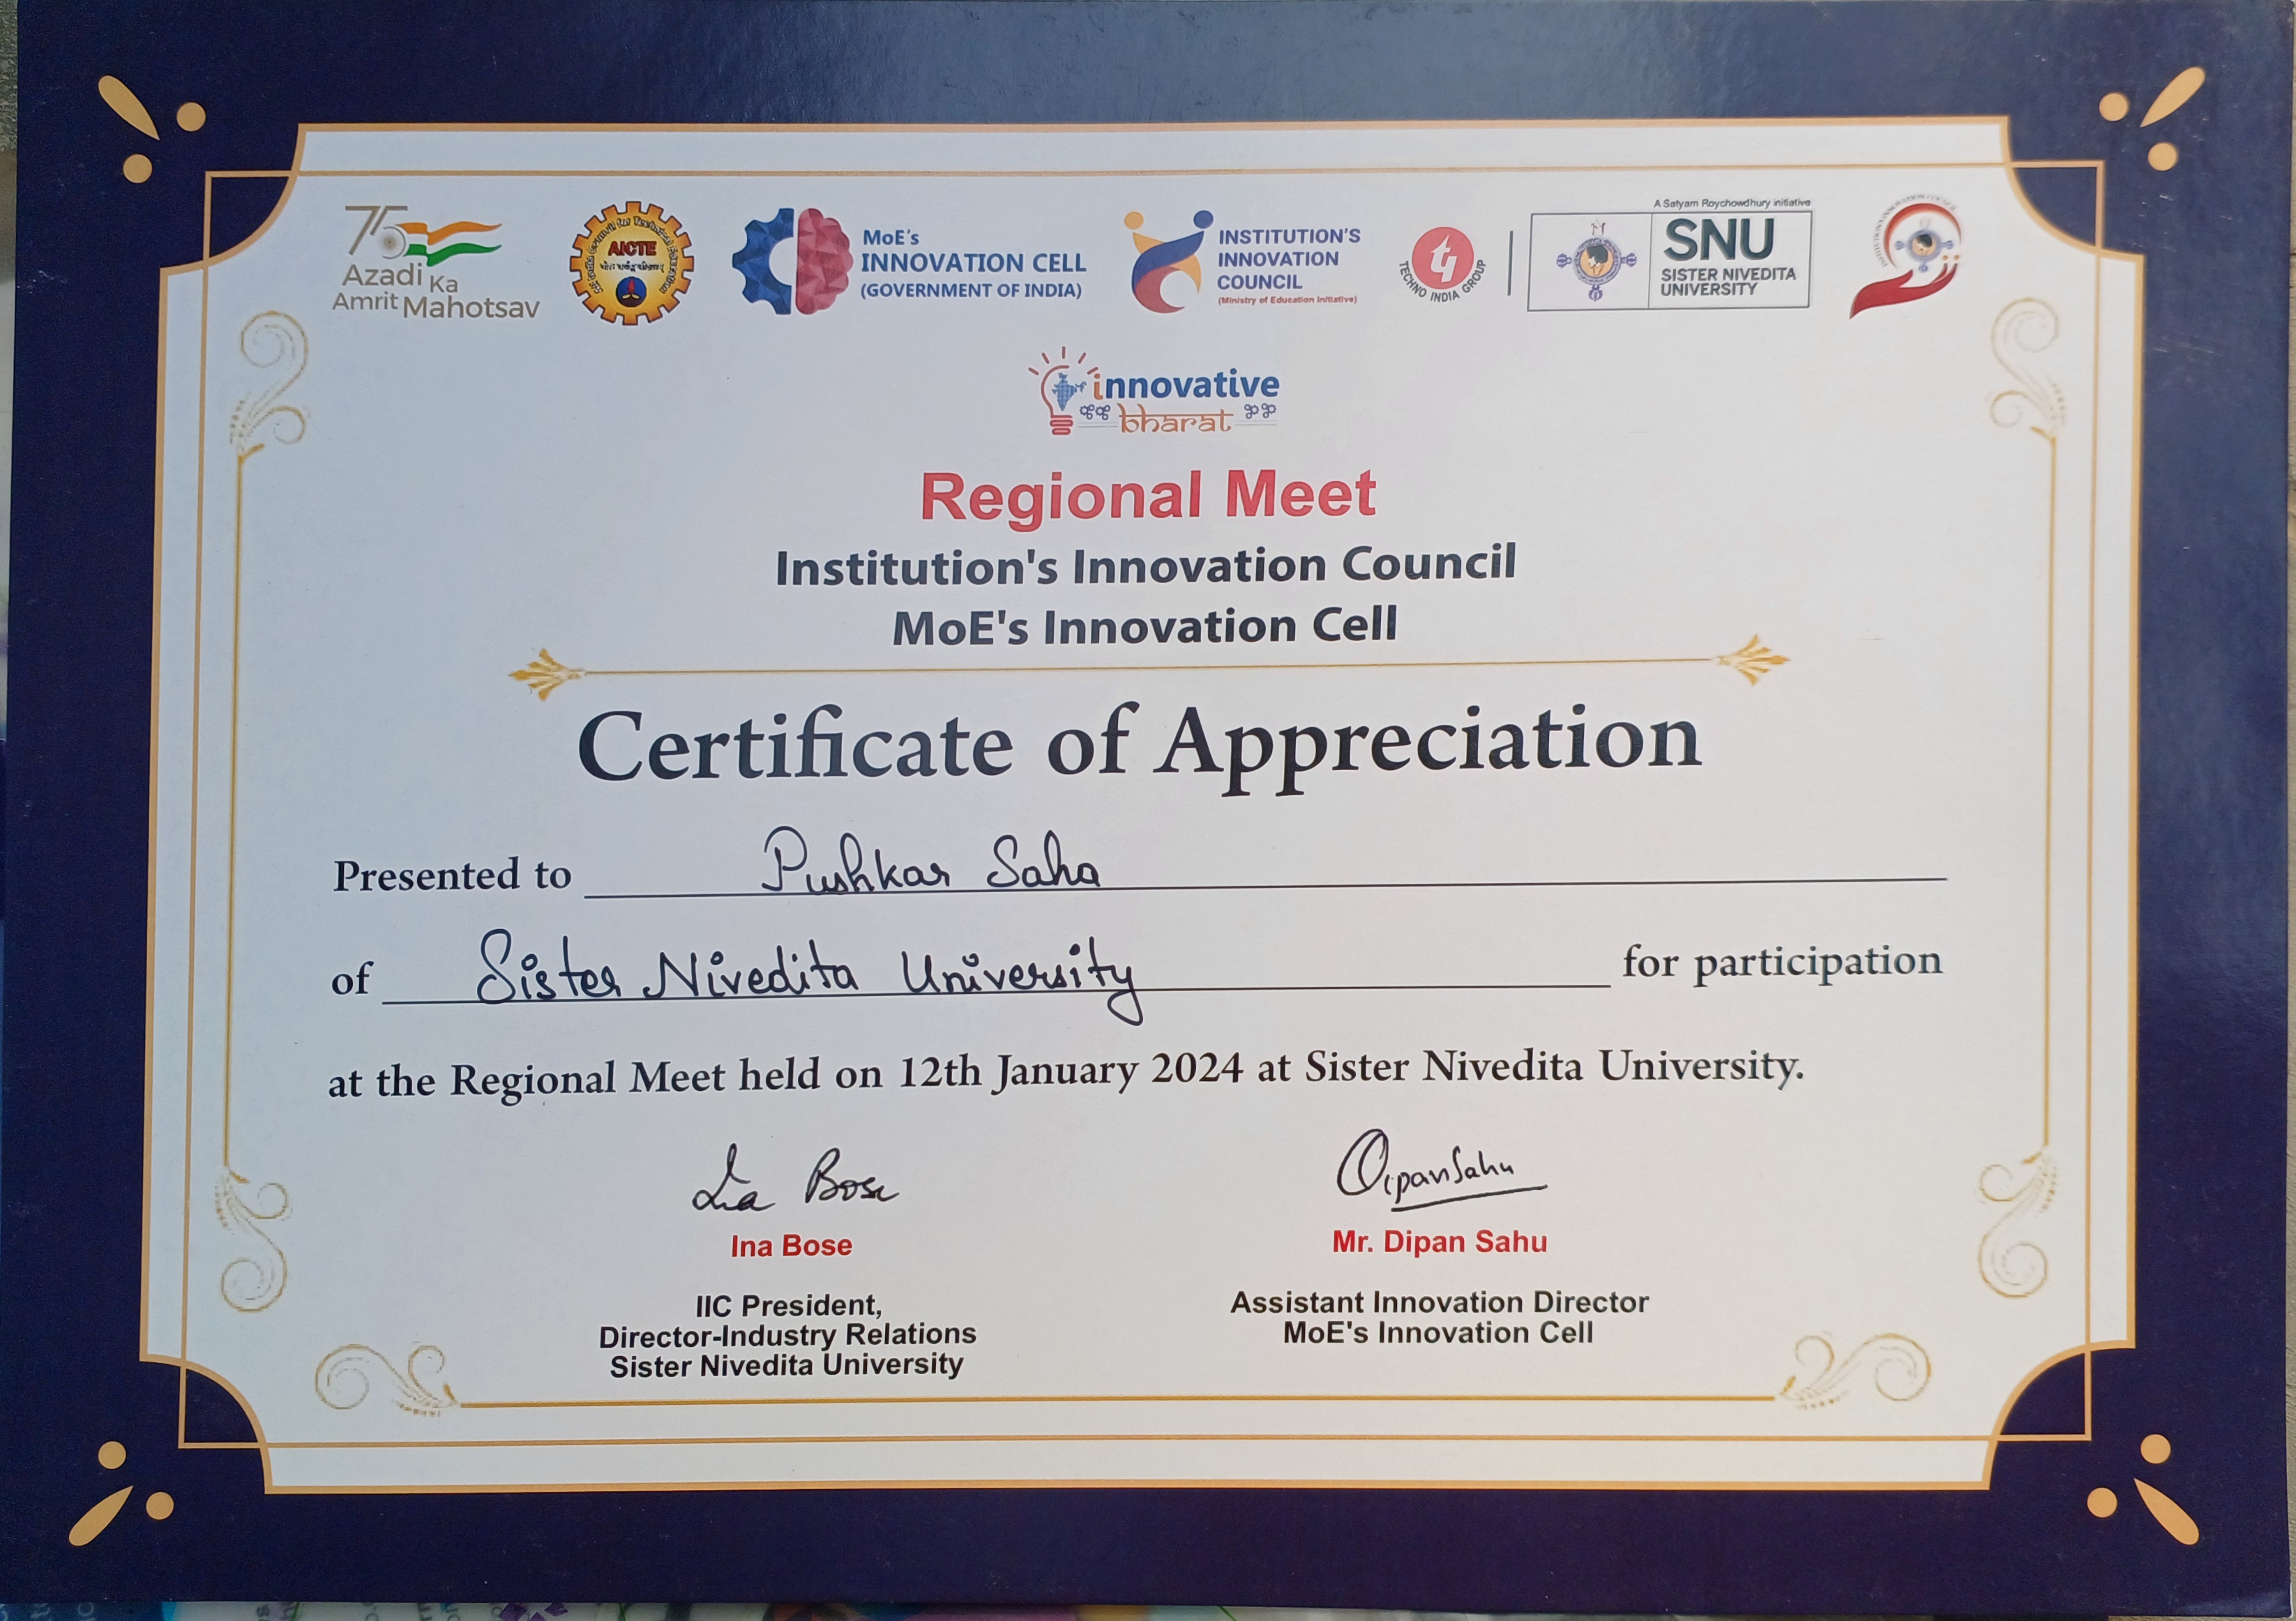 75
Azadi Ka
Amrit Mahotsav
AICTE
MoE's
INNOVATION CELL
(GOVERNMENT OF INDIA)
INSTITUTION'S
INNOVATION
COUNCIL
(Ministry of Education Initiative)
TECHNO INDIA GROUP
A Satyam Roychowdhury initiative
SNU
SISTER NIVEDITA
UNIVERSITY
innovative
bharat
Regional Meet
Institution's Innovation Council
MoE's Innovation Cell
Certificate of Appreciation
Presented to Pushkar Saha
of Sister Nivedita University for participation
at the Regional Meet held on 12th January 2024 at Sister Nivedita University.
Ina Bose
Dipan Sahu
Ina Bose
Mr. Dipan Sahu
IIC President,
Director-Industry Relations
Sister Nivedita University
Assistant Innovation Director
MoE's Innovation Cell